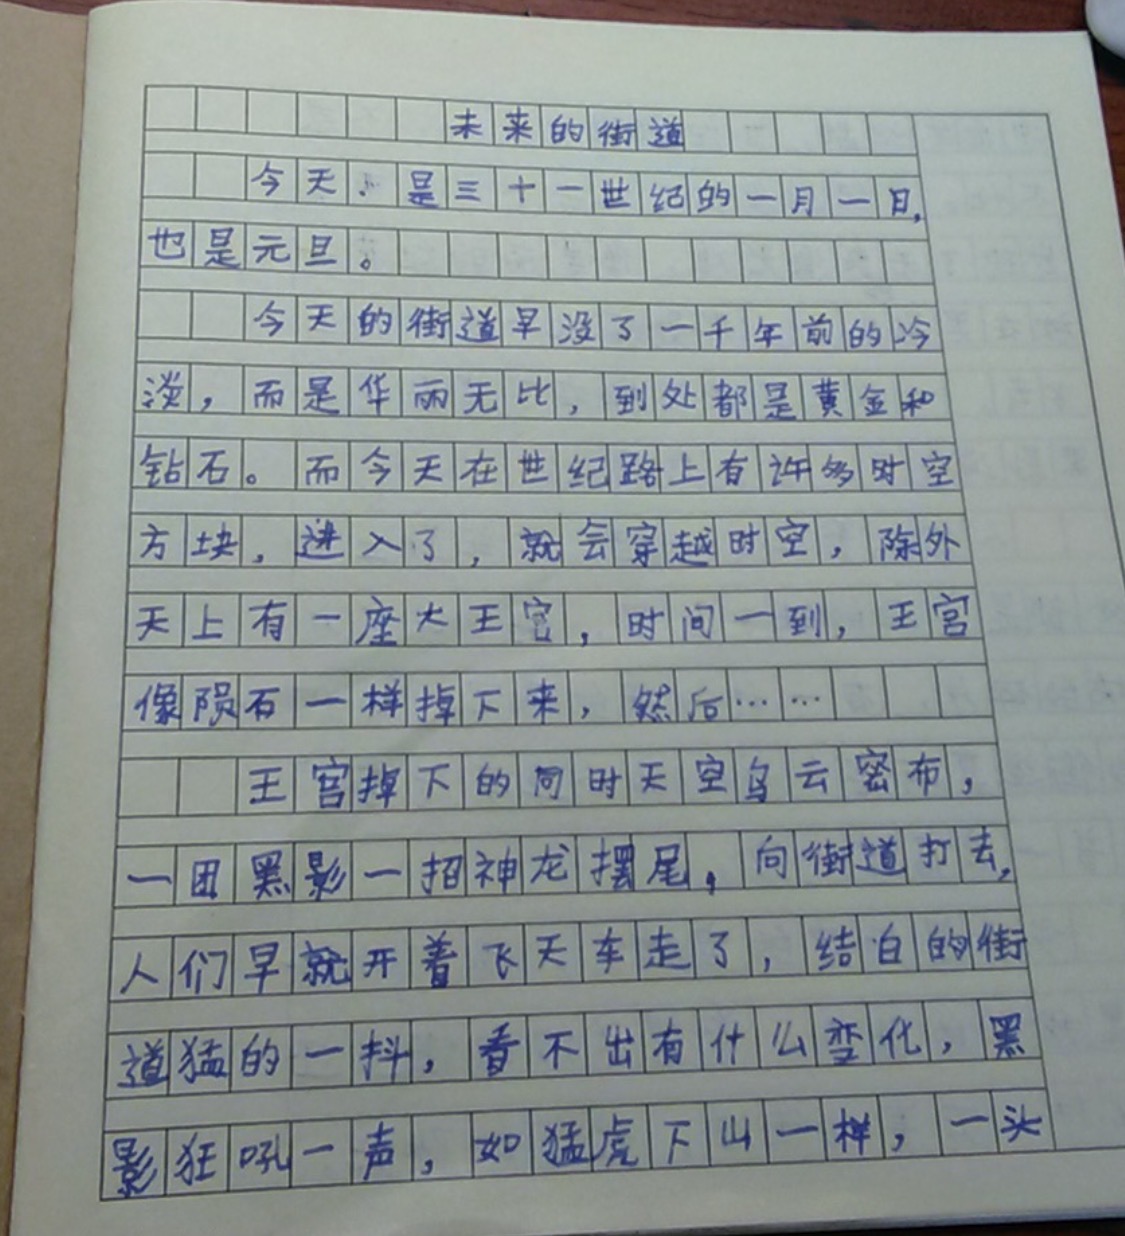 未来的街道
今天,是三十一世纪的一月一日,
也是元旦。
今天的街道早没了一千年前的冷
淡,而是华丽无比,到处都是黄金和
钻石。而今天在世纪路上有许多时空
方块,进入了,就会穿越时空,除外
天上有一座大王宫,时间一到,王宫
像陨石一样掉下来,然后……
王宫掉下的同时天空乌云密布,
一团黑影一招神龙摆尾,向街道打去,
人们早就开着飞天车走了,结白的街
道猛的一抖,看不出有什么变化,黑
影狂吼一声,如猛虎下山一样,一头